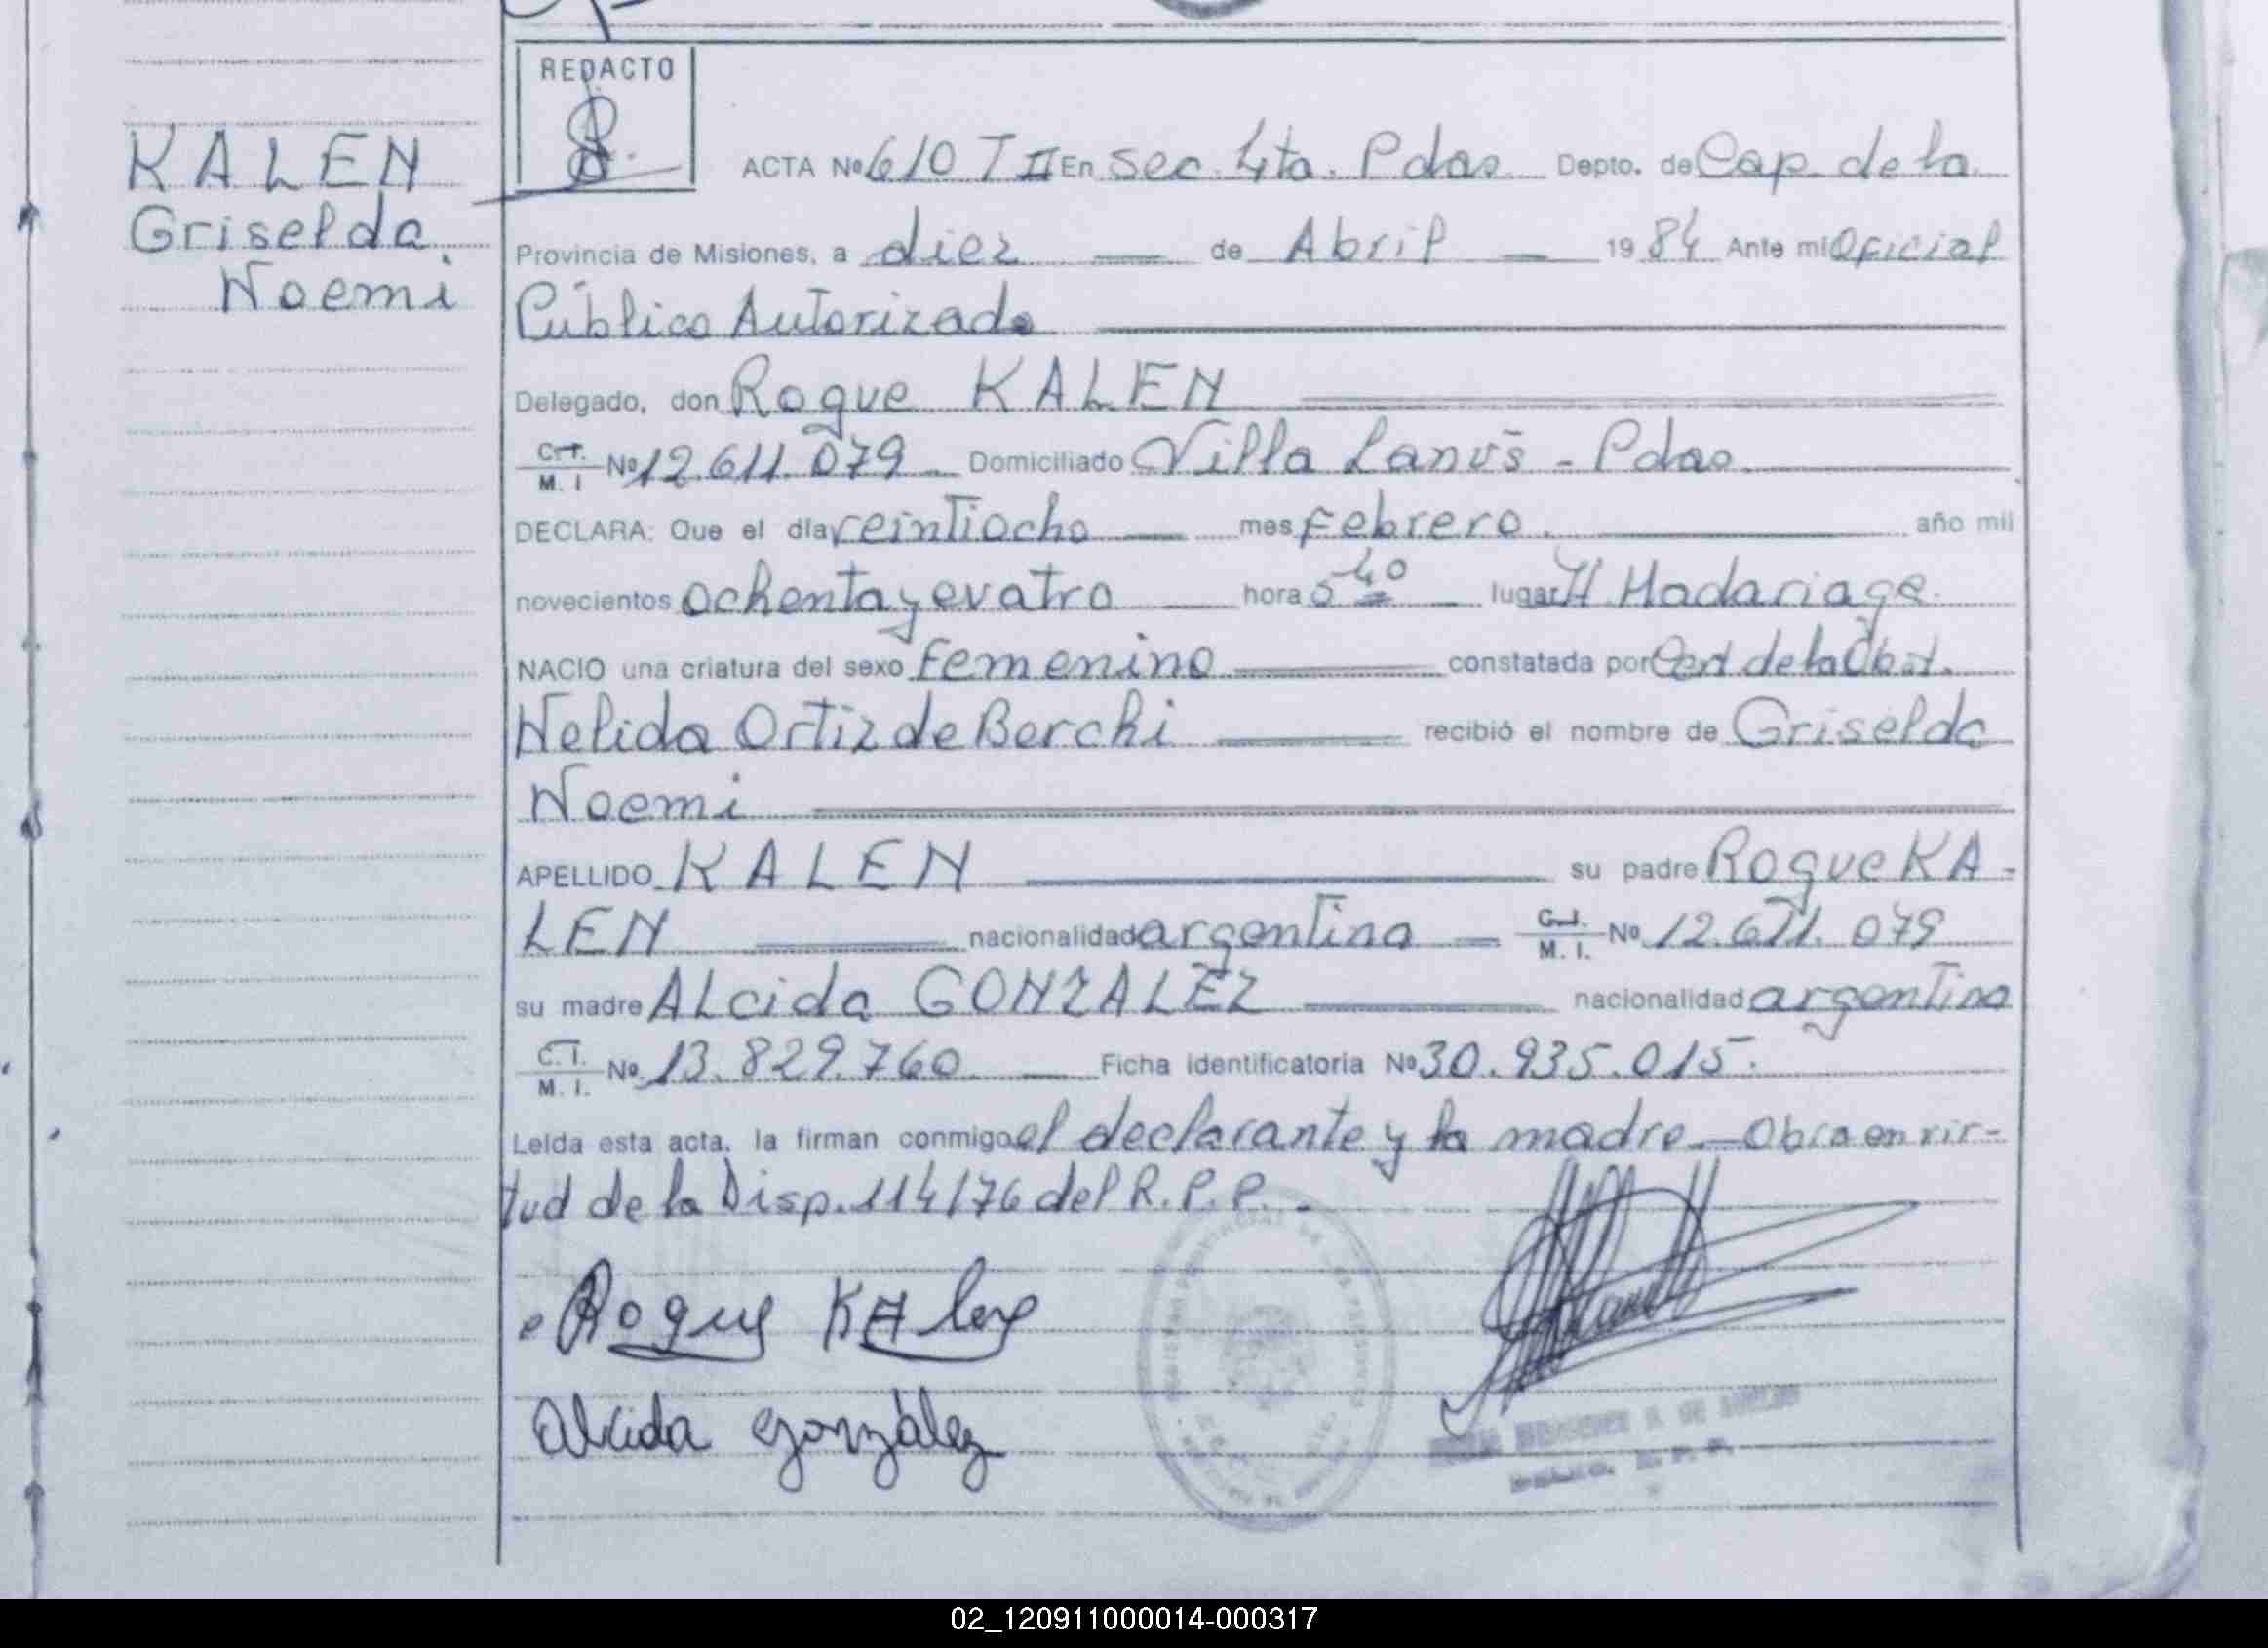 REDACTO
KALEN
Griselda
Noemi
ACTA Nº 610 T II En Sec. 4ta. Pdas Depto. de Cap. de la
Provincia de Misiones, a diez de Abril 1984 Ante mi Oficial
Público Autorizado
Delegado, don Roque KALEN
C. I. M. I Nº 12.611.079 Domiciliado Villa Lanús - Pdas.
DECLARA: Que el día veintiocho mes Febrero. año mil
novecientos ochenta y cuatro hora 5 40 lugar H. Madariaga.
NACIO una criatura del sexo Femenino constatada por Cert de la Obst.
Nelida Ortiz de Berchi recibió el nombre de Griselda
Noemi
APELLIDO KALEN su padre Roque KA-
LEN nacionalidad argentina C. I. M. I. Nº 12.611.079
su madre ALcida GONZALEZ nacionalidad argentina
C. I. M. I. Nº 13.829.760 Ficha identificatoria Nº 30.935.015.
Leída esta acta, la firman conmigo el declarante y la madre.- Obra en vir-
tud de la Disp. 114/76 del R.P.P. -
Roque KAlen
Alcida González
02_120911000014-000317